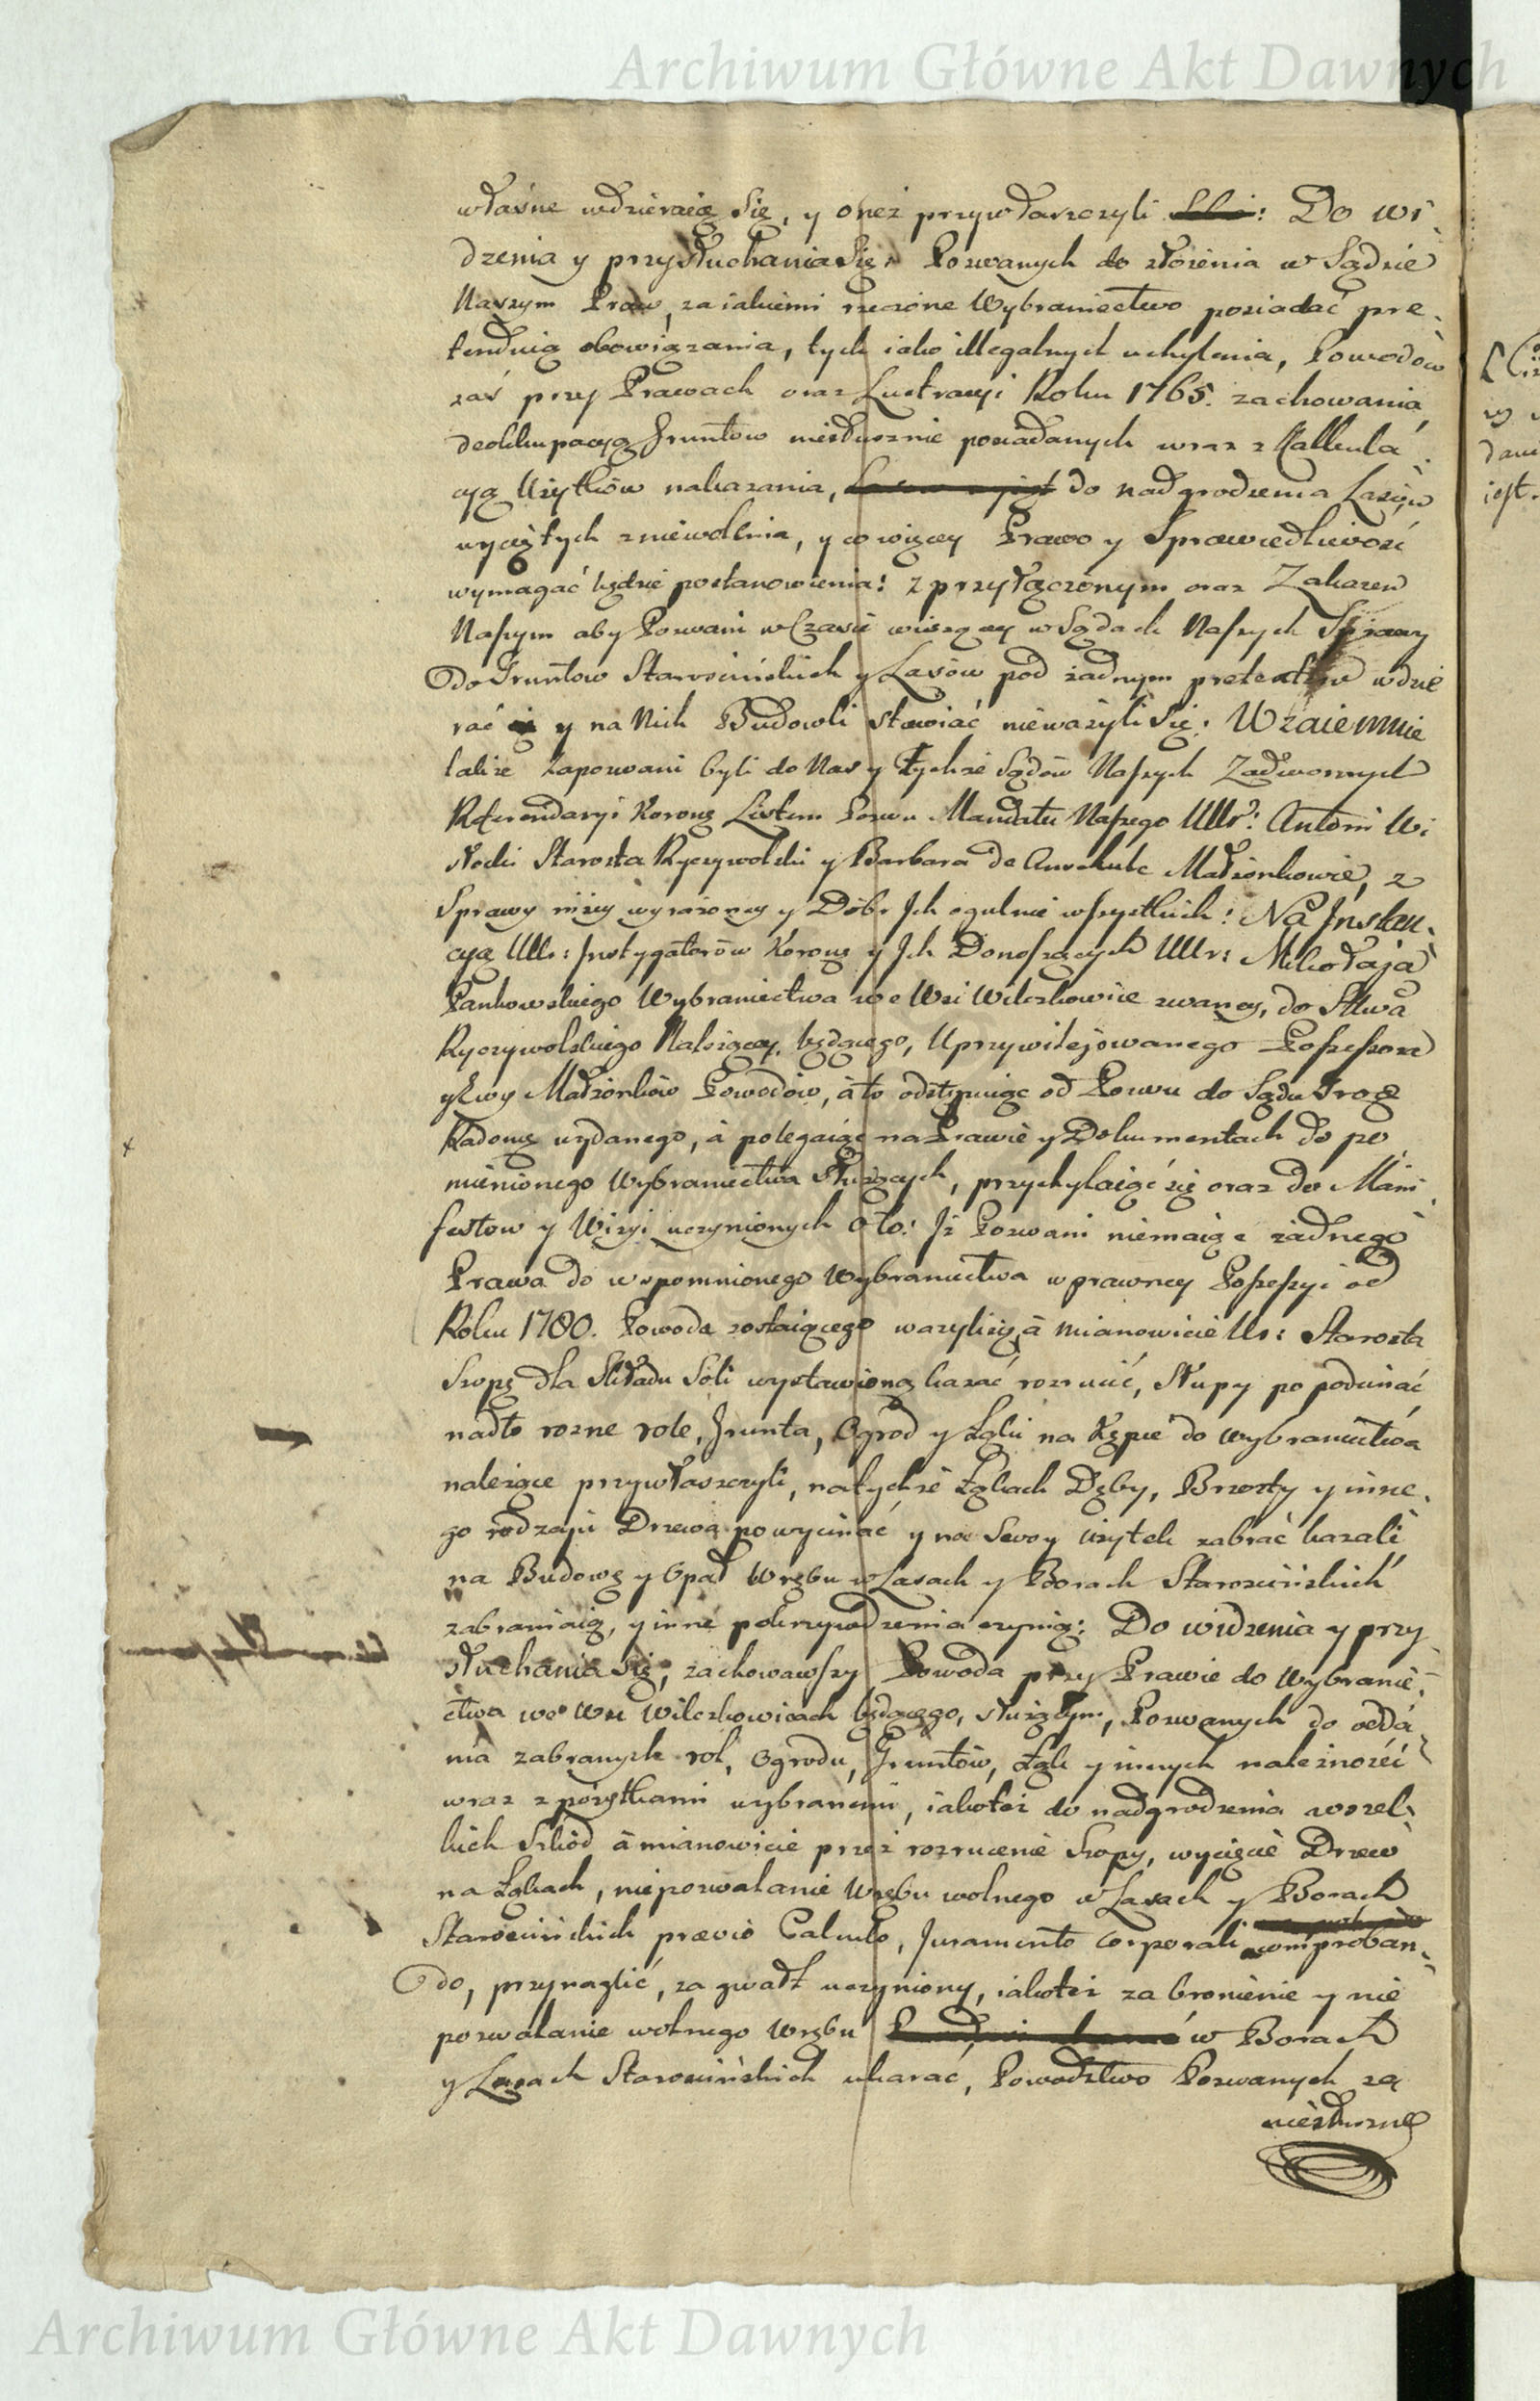 Archiwum Główne Akt Dawnych
własne wdzieraią się, y oneż przywłaszczyli : Do wi
dzenia y przysłuchania się: Pozwanych do złożenia w Sądzie
Naszym Praw, za iakiemi rzeczone Wybraniectwo posiadać pre
tenduią obowiązania, tych iako illegalnych uchylenia, Powodów
zaś przy Prawach oraz Lustracyi Roku 1765. zachowania
deokkupacyą Gruntow niesłusznie posiadanych wraz z Kalkula
cyą Użytków nakazania, do nadgrodzenia Lasów
wyciętych zniewolenia, y co więcey Prawo y Sprawiedliwość
wymagać będzie postanowienia: z przyłączonym oraz Zakazem
Naszym aby Pozwani w Czasie wiszącey w Sądach Naszych Sprawy
do Gruntow Starościńskich y Lasów pod żadnym pretextem wdzie
rać y na Nich Budowli stawiać nieważyli się. Wzaiemnie
także zapozwani byli do Nas y Tychże Sądów Naszych Zadwornych
Referendaryi Koronę Listem Pozwu Mandatu Naszego Ur: Antoni
Starosta Ryczywolski y Barbara de Małżonkowie, z
Sprawy niżey wyrażoney y Dóbr Ich ogulnie wszystkich: Na Instan
cyą Ur: Instygatorów Koronę y Ich Donoszących Ur: Mikołaja
Pankowskiego Wybraniectwa we Wsi Wilczkowice zwaney, do Sttwa
Ryczywolskiego Należącey, będącego, Uprzywilejowanego Possessora
y Małżonków Powodów, á to odstępuiąc od Pozwu do Sądu Grog
Radomę wydanego, á polegaiąc na Prawie y Dokumentach do po
mienionego Wybraniectwa służących, przychylaiąć się oraz do Mani
festow y Wizyi uczynionych Oto: Iż Pozwani niemaiąc żadnego
Prawa do wspomnionego Wybraniectwa w prawney Possessyi od
Roku 1780. Powoda zostaiącego ważyli się á mianowicie Ur: Starosta
Szopę dla Składu Soli wystawioną kazać rozrucić, Słupy po podcinać
nadto rozne role, Grunta, Ogrod y Łąki na Kępie do Wybraniectwa
należące przywłaszczyli, na tychże Łąkach Dęby, Brzosty y inne
go rodzaju Drzewa powycinać y na swoy użytek zabrać kazali
na Budowę y Opał Wrębu w Lasach y Borach Starościńskich
zabraniaią, y inne pokrzywdzenia czynią: Do widzenia y przy
słuchania się, zachowawszy Powoda przy Prawie do Wybranie
ctwa we Wsi Wilczkowicach będącego, służącym, Pozwanych do odda
nia zabranych rol, Ogrodu, Gruntów, Łąk y innych należności
wraz z pożytkami wybranemi, iakoteż do nadgrodzenia wszel
kich Szkód á mianowicie przez rozrucenie Szopy, wycięcie Drzew
na Łąkach, niepozwalanie Wrębu wolnego w Lasach y Borach
Starościńskich prævio Calculo, Juramento Corporali comproban
do, przynaglić, za gwałt uczyniony, iakoteż zabronienie y nie
pozwalanie wolnego Wrębu w Borach
y Lasach Starościńskich ukarać, Powodztwo Pozwanych za
niesłuszne
Archiwum Główne Akt Dawnych